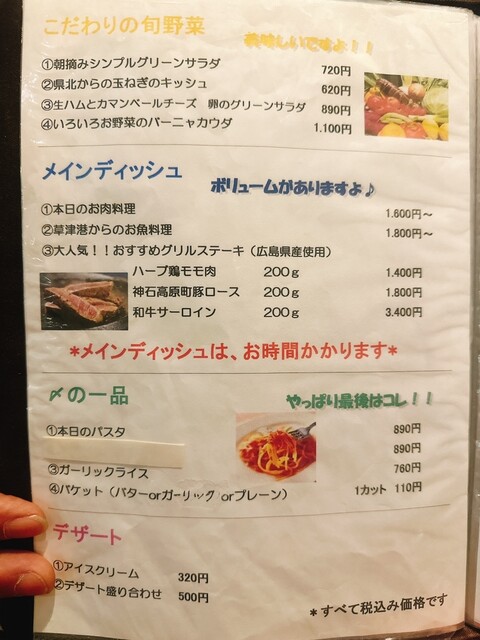 こだわりの旬野菜
美味しいですよ！！
①朝摘みシンプルグリーンサラダ 720円
②県北からの玉ねぎのキッシュ 620円
③生ハムとカマンベールチーズ 卵のグリーンサラダ 890円
④いろいろお野菜のバーニャカウダ 1.100円
メインディッシュ
ボリュームがありますよ♪
①本日のお肉料理 1.600円～
②草津港からのお魚料理 1.800円～
③大人気！！おすすめグリルステーキ（広島県産使用）
ハーブ鶏モモ肉 200ｇ 1.400円
神石高原町豚ロース 200ｇ 1.800円
和牛サーロイン 200ｇ 3.400円
*メインディッシュは、お時間かかります*
〆の一品
やっぱり最後はコレ！！
①本日のパスタ 890円
890円
③ガーリックライス 760円
④バケット（バターorガーリック orプレーン） 1カット 110円
デザート
①アイスクリーム 320円
②デザート盛り合わせ 500円
*すべて税込み価格です